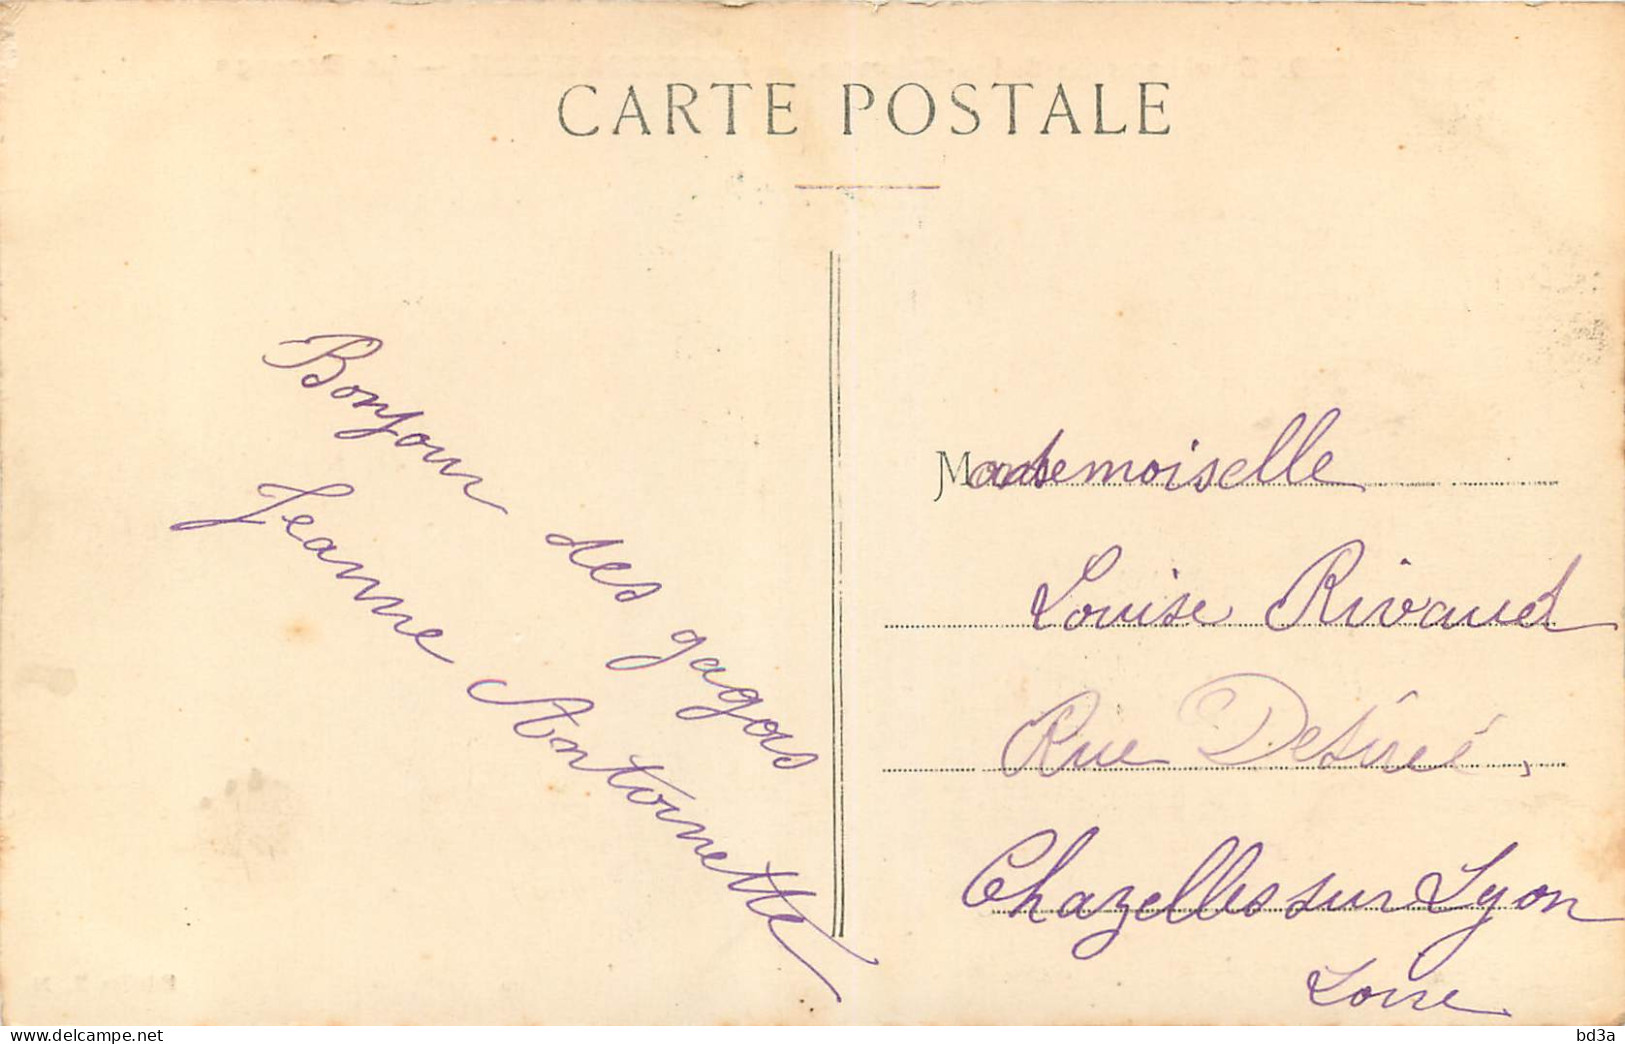 CARTE POSTALE
Bonjour des gagas
Jeanne Antoinette
Mademoiselle
Louise Rivaud
Rue Désiré,
Chazelles sur Lyon
Loire
bd3a